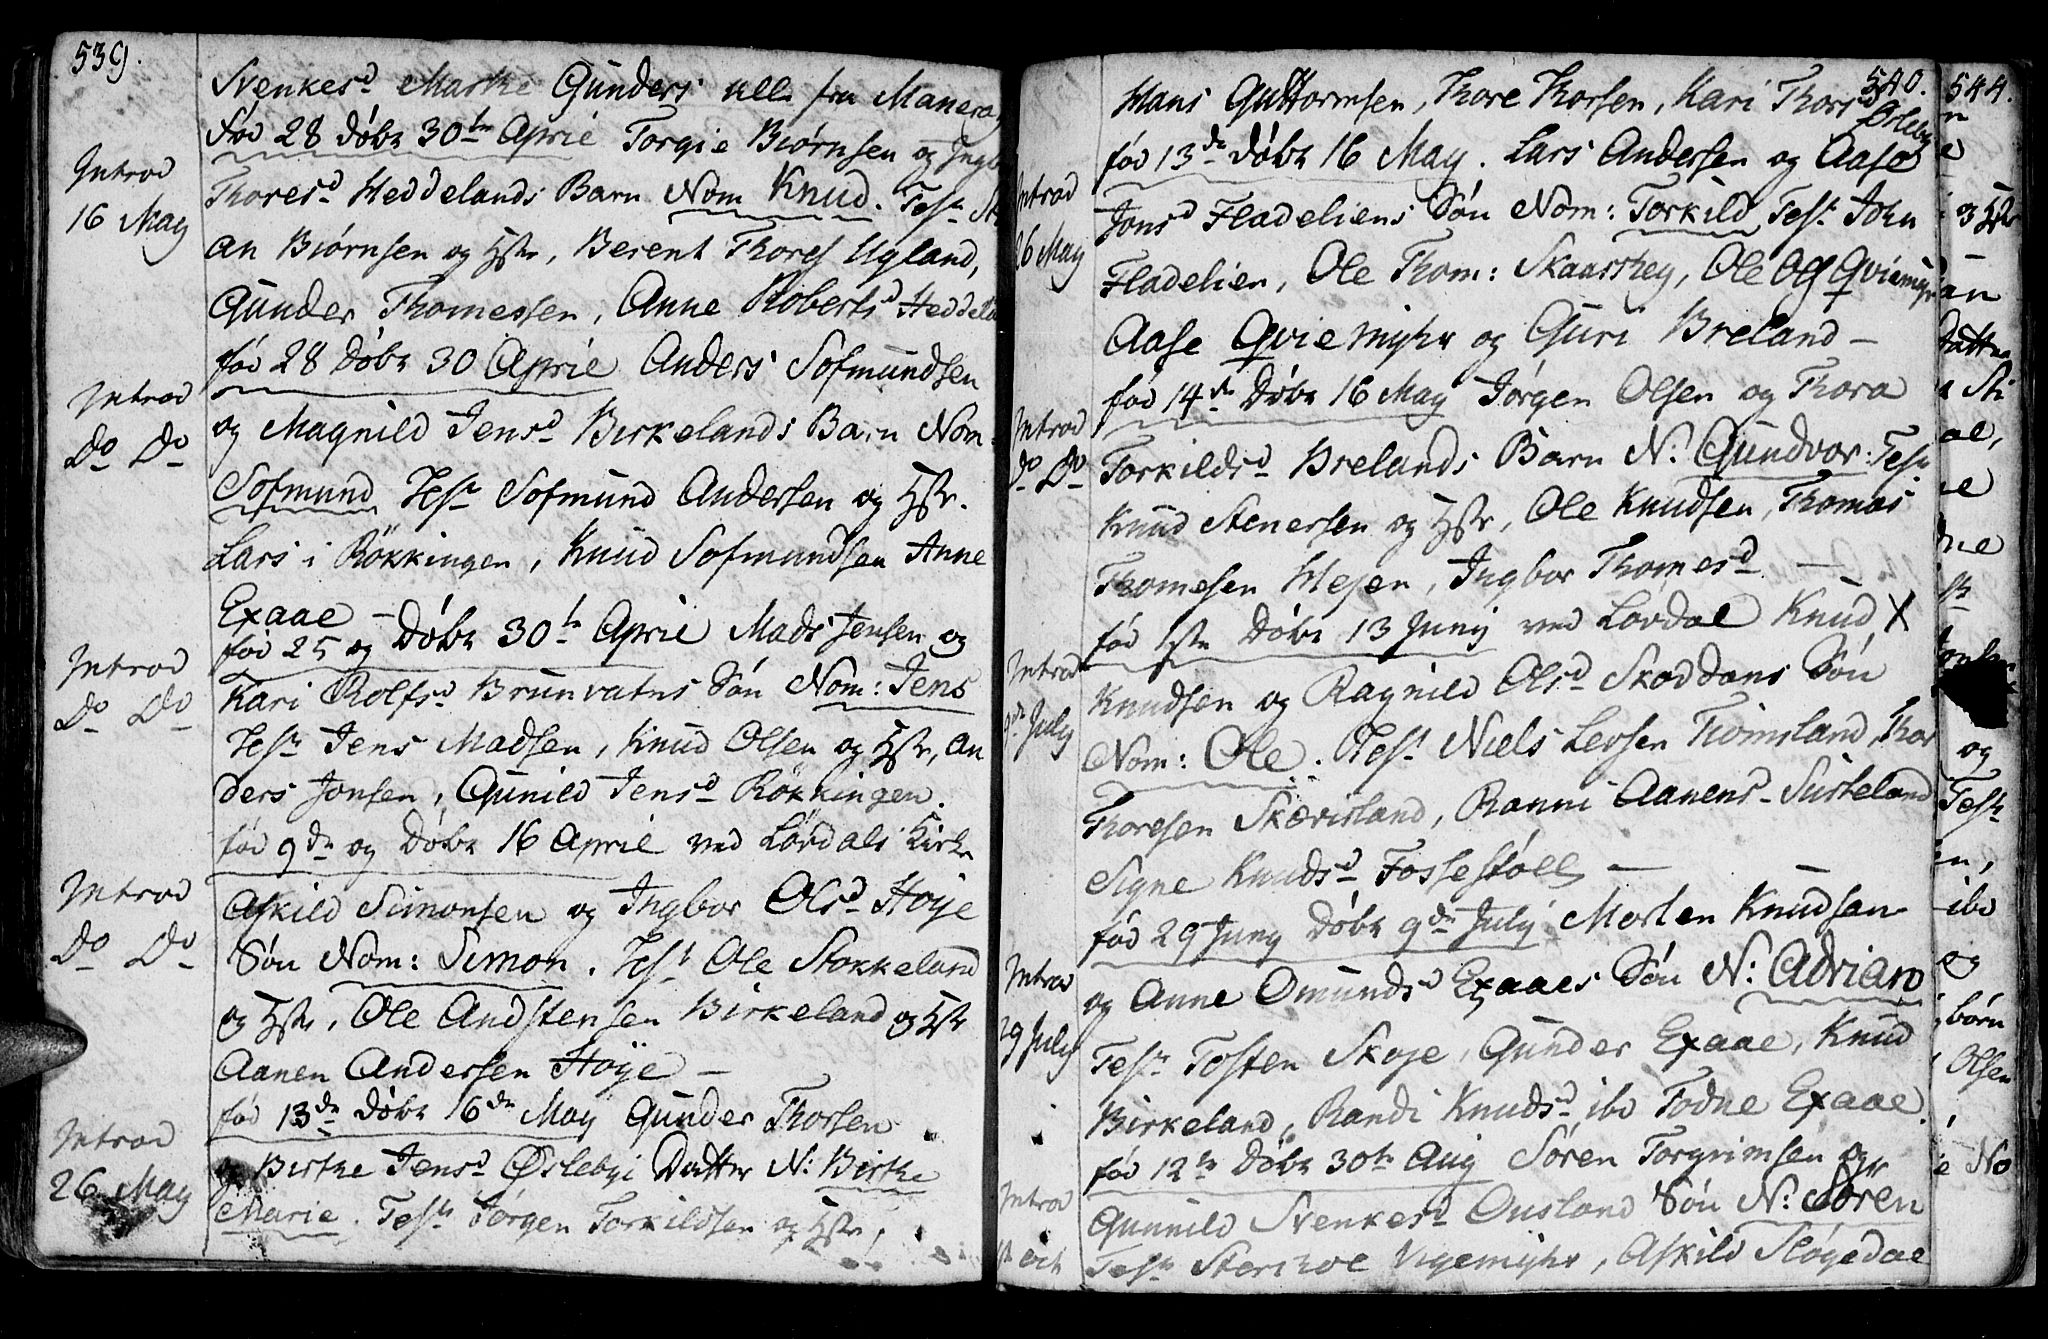 539.
Svenkesd Marthe Gunders alle fra Manera,
Fød 28 døbt 30te April Torgie Biørnsen og Ingb
Introd
Thoresd Heddelands Barn Nom Knud. Test.
16 May
an Biørnsen og Hstr, Berent Thores Ugland,
Gunder Thomessen, Anne Robertsd Heddela
fød 28 døbt 30 April Anders Sofmundsen
Introd
og Magnild Jensd Birkelands Barn Nom:
Do Do
Sofmund Test Sofmund Andersen og Hstr.
Lars i Røkkingen, Knud Sofmundsen Anne
Exaae —
fød 25 og Døbt 30te April Mads Jensen og
Introd
Kari Rolfsd Brunvatns Søn Nom: Jens
Do Do
Test Jens Madsen, Knud Olsen og Hstr, An
ders Jonsen, Gunild Jensd Røkkingen.
fød 9de og Døbt 16 April ved Løvdals Kirke
Introd
Askild Simonsen og Ingbor Olsd Høÿe
Do Do
Søn Nom: Simon. Test Ole Stokkeland
og Hstr, Ole Andstensen Birkeland og Hstr
Aanen Andersen Høÿe —
fød 13de døbt 16de May Gunder Thorsen
Introd
og Birthe Jensd Øslebyi Datter N: Birthe
26 May
Marie. Test Jørgen Torkildsen og Hstr,
540.
Hans Guttormsen, Thore Thorsen, Kari Thorsd
Øsleby
fød 13de døbt 16 May. Lars Andersen og Aase
Introd
Jonsd Fladeliens Søn Nom: Torkild Test John
26 May
Fladelien, Ole Thom: Skaarthey, Ole og Qviemyr
Aase Qviemyhr og Guri Breland —
fød 14de Døbt 16 May Jørgen Olsen og Thora
Introd
Torkildsd Brelands Barn N: Gundvor: Test
Do Do
Knud Stenersen og Hstr, Ole Knudsen, Thomas
Thomesen Wesen, Ingbor Thomesd —
fød 1ste Døbt 13 Junij ved Løvdal Knud X
Introd
Knudsen og Ragnild Olsd Skoddans Søn
9de July
Nom: Ole. Test Niels Levsen Tromsland, Thor
Thoresen Skærisland, Ranni Aanens- Surteland
Signe Knudsd Fossestøll — —
fød 29 Juny Døbt 9de July Morten Knudsen
Introd
og Anne Omundsd Exaaes Søn N: Adrian
29 July
Test Tosten Skoie, Gunder Exaae, Knud
Birkeland, Randi Knudsd ibd Todne Exaae.
fød 12te Døbt 30te Aug Søren Torgrimsen og
Introd
Gunnild Svenkesd Ousland Søn N: Søren
Oct
Test Sterkoe Vigemyhr, Askild Fløgedal
544.
og Hstr
Datter
og
Test
ibd
og
børn
Olsen
No